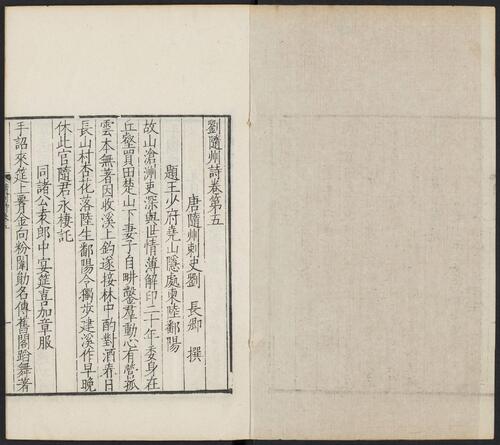 劉隨州詩卷第五
唐隨州刺史劉 長卿 撰
題王少府堯山隱處柬陸鄱陽
故山滄洲吏深與世情薄解印二十年委身在
丘壑買田楚山下妻子自畊鑿羣動心有營孤
雲本無著因收溪上釣遂接林中酌對酒春日
長山村杏花落陸生鄱陽令獨步建溪作早晚
休此官隨君永棲託
同諸公袁郎中宴筵喜加章服
手詔來筵上腰金向粉闈勛名傳舊閣蹈舞著